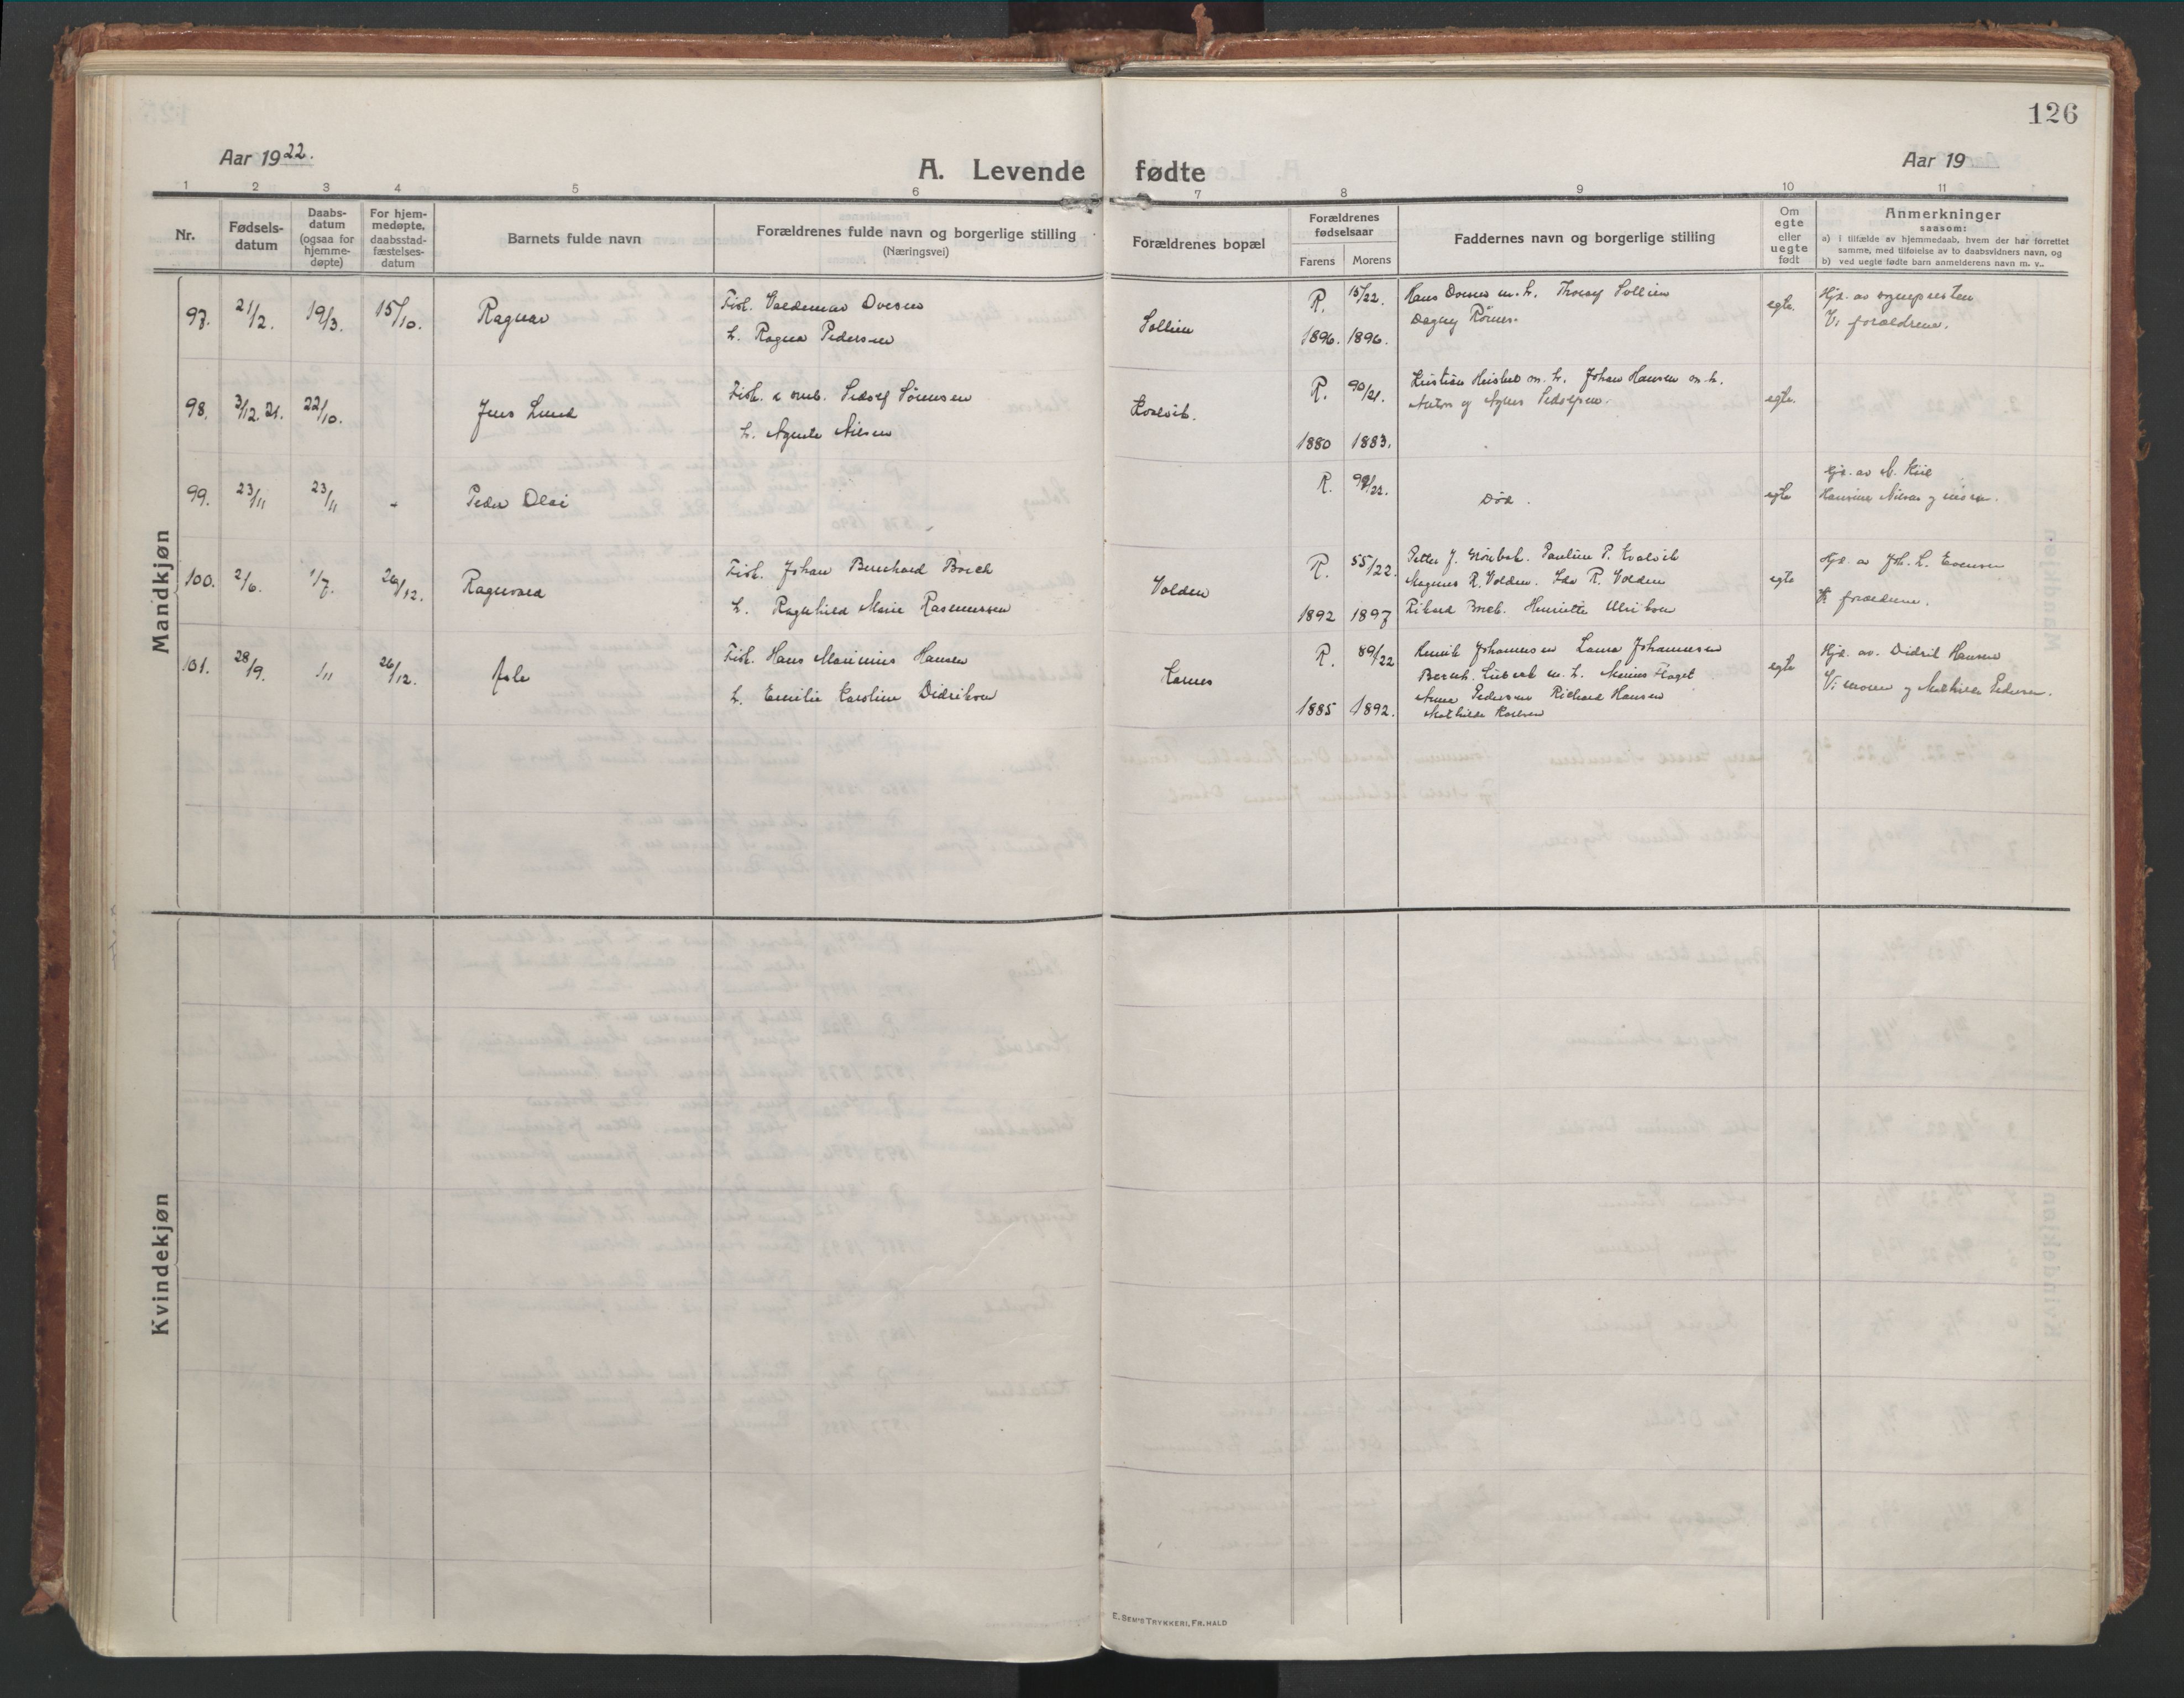 126
Aar 1922.
A. Levende fødte
Aar 19
1 2 3 4 5 6 7 8 9 10 11
Nr.
Fødsels-
datum
Daabs-
datum
(ogsaa for
hjemme-
døpte)
For hjem-
medøpte,
daabsstad-
fæstelses-
datum
Barnets fulde navn
Forældrenes fulde navn og borgerlige stilling
(Næringsvei)
Forældrenes bopæl
Forældrenes
fødselsaar
Farens Morens
Faddernes navn og borgerlige stilling
Om
egte
eller
uegte
født
Anmerkninger
saasom:
a) i tilfælde av hjemmedaab, hvem der har forrettet
samme, med tilføielse av to daabsvidners navn, og
b) ved uegte fødte barn anmelderens navn m. v..
Mandkjøn
97. 21/2. 19/3. 15/10. Ragnar
Fisk. Valdemar Ovesen
h. Ragna Pedersen
Sollien
R. 15/22.
1896. 1896.
Hans Ovesen m. h. Thoralf Sollien
Dagny
egte.
Hjd. av sognepresten
Vi forældrene.
98. 3/12. 21. 22/10. Jens Lund
Fisk. & smb. Sedolf Sørensen
h. Agnete Nilsen
Kvalvik.
R. 90/21.
1880 1883.
Kristian m. h. Johan Hansen m. h.
Anton og Agnes Sedolfsen.
egte.
99. 23/11 23/11 - Peder Olai
R. 99/22.
Død.
egte
Hjd. av M. Kiil
Hansine Nilsen og
100. 2/6. 1/7. 26/12. Ragnvald
Fisk. Johan Bernhard Borch
h. Ragnhild Marie Rasmussen
Volden
R. 55/22.
1892 1897
Petter J. Pauline P. Kvalvik
Magnus R. Volden. Ida R. Volden
Rikard Borch. Henriette Ulriksen
egte
Hjd. av Joh. L. Evensen
Vi forældrene.
101. 28/9. 1/11 26/12. Asle
Fisk. Hans Marinius Hansen
h. Emilie Karoline Didriksen
Karnes
R. 89/22
1885 1892.
Henrik Johannesen Laura Johannesen
Bernh. m. h. Meines Floget
Anna Pedersen Richard Hansen
Mathilde Karlsen
egte
Hjd. av. Didrik Hansen
Vi moren og Mathilde Pedersen.
Kvindekjøn
E. SEM'S TRYKKERI, FR. HALD